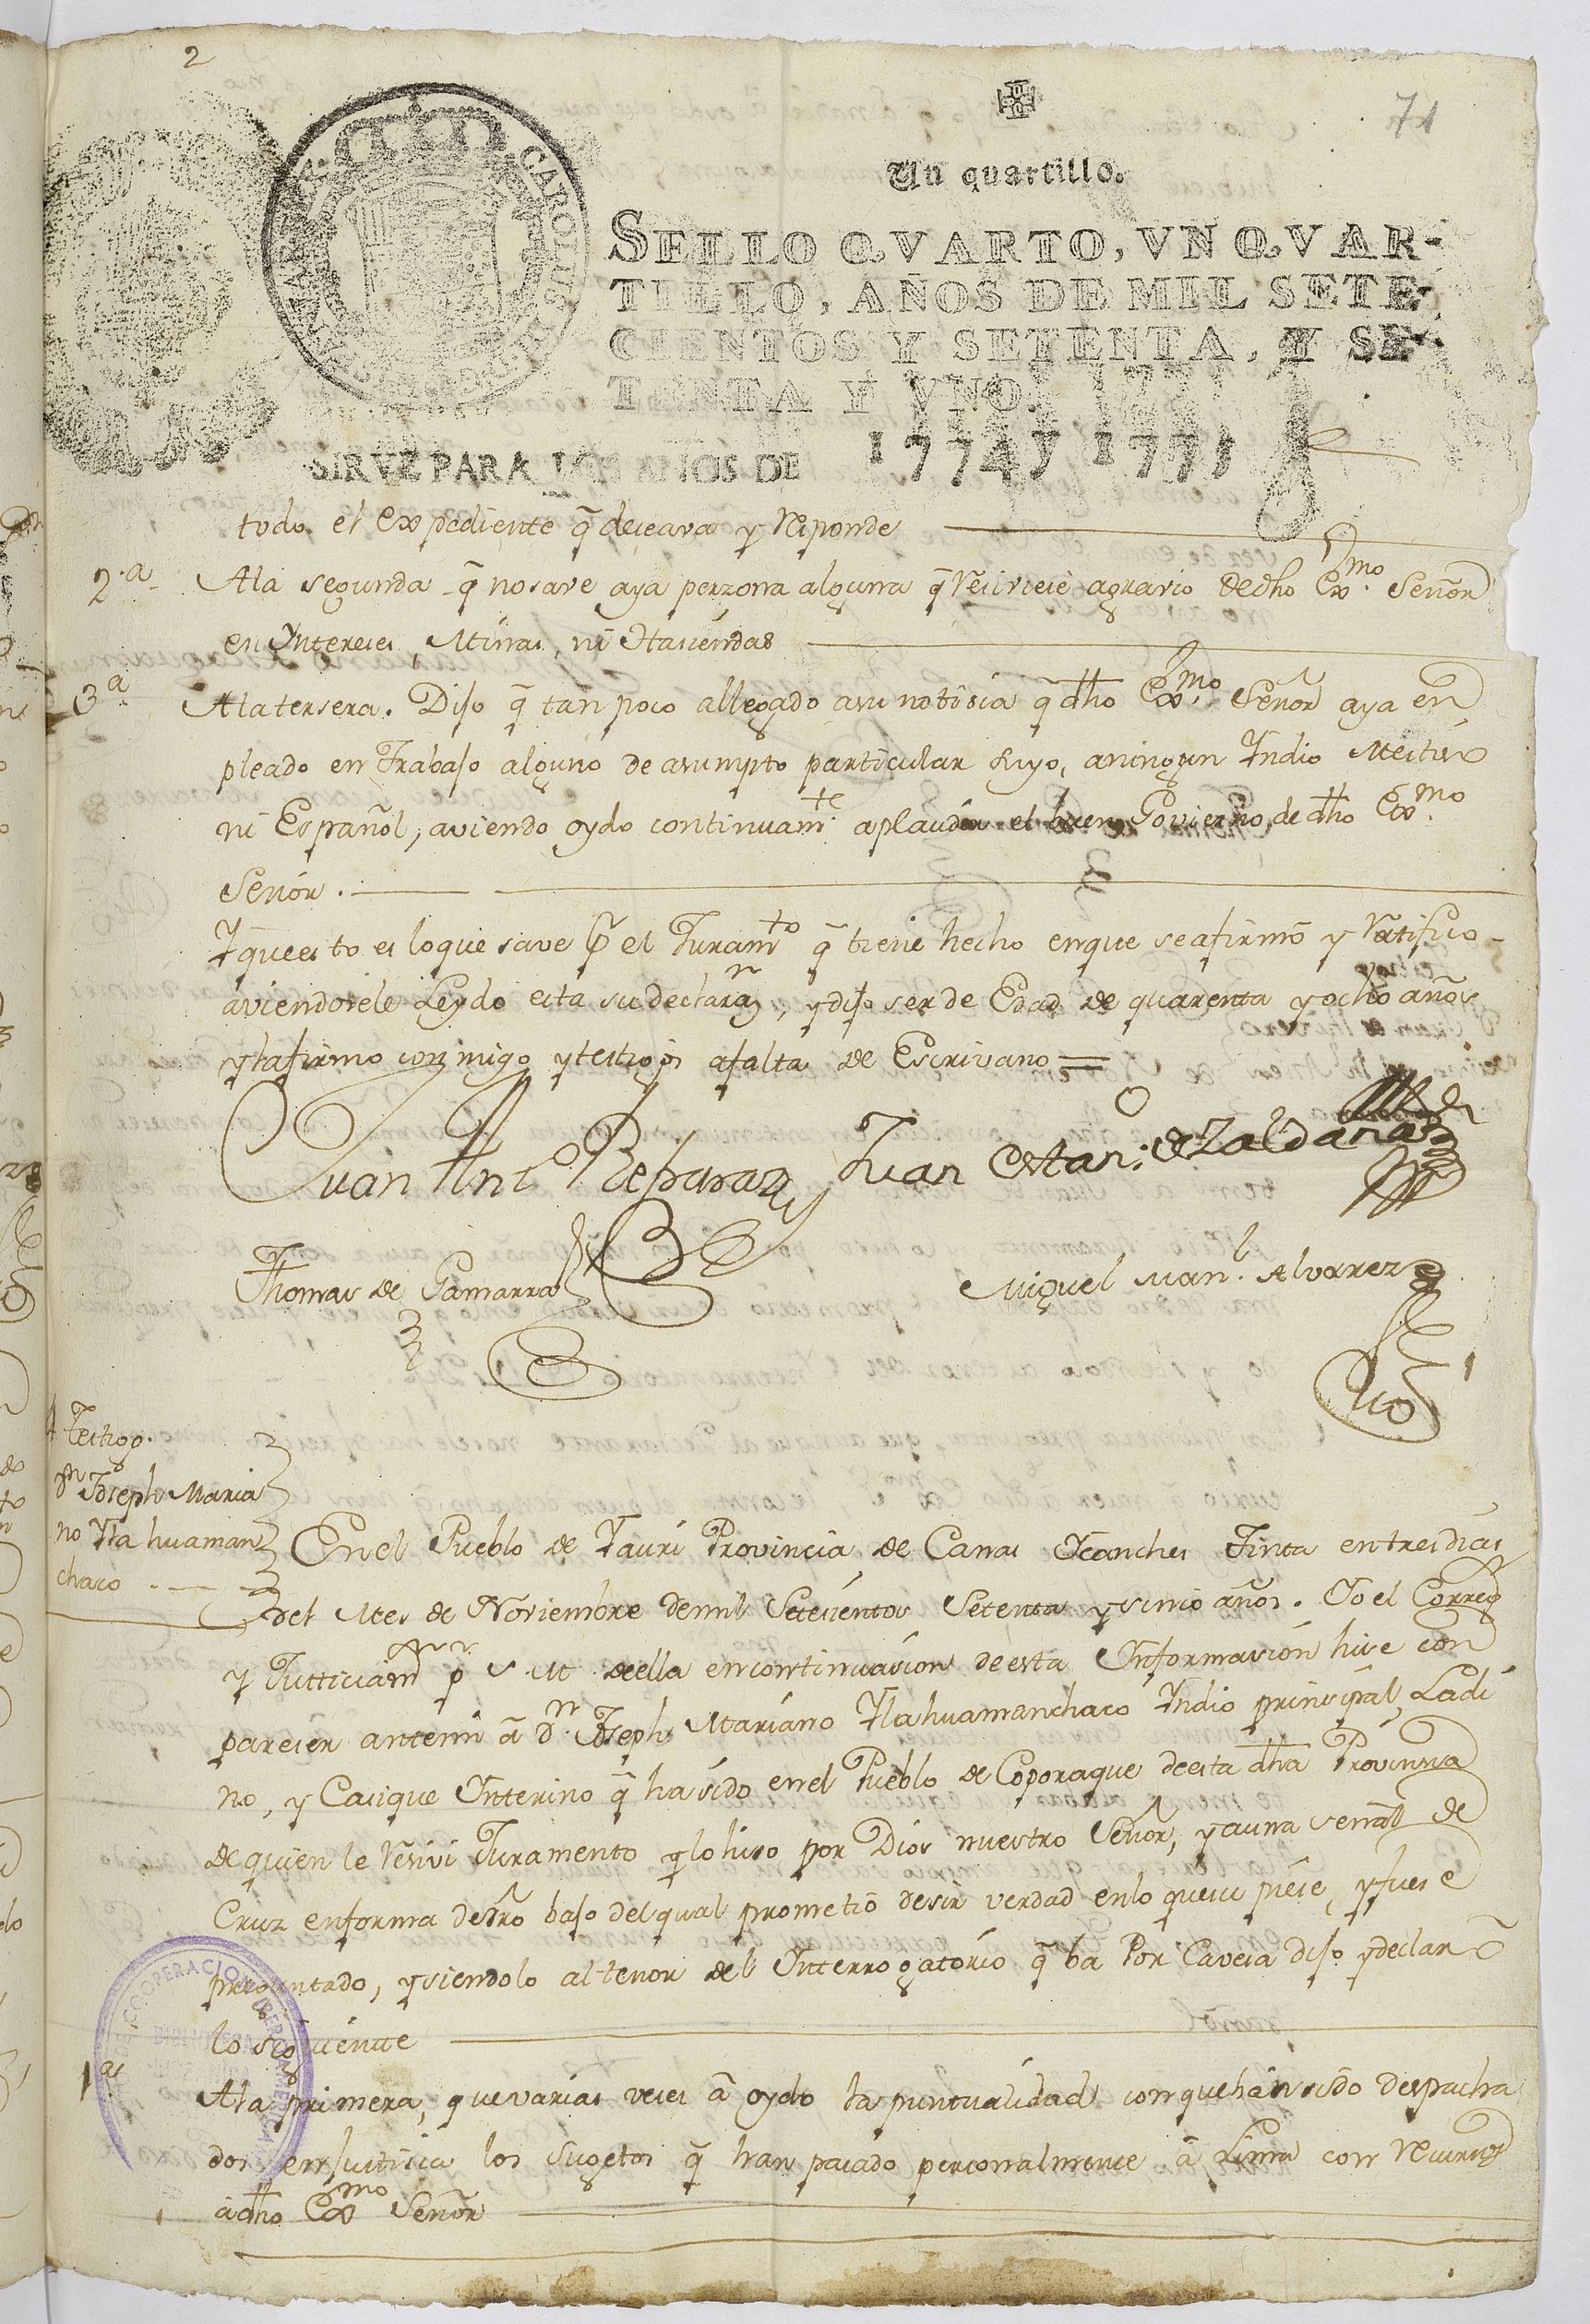 2
71
Un quartillo.
SELLO QVARTO, VN QVAR-
TILLO, AÑOS DE MIL SETE-
CIENTOS Y SETENTA, Y SE-
TENTA Y VNO.
SIRVE PARA LOS AÑOS DE 1774 y 1775
todo el expediente q̃ deceava y Responde
2.a Ala segunda q̃ no save aya perzona alguna q̃ Resiviese agravio de dho Exmo. Señor
en Ynterezes, Minas, ni Haciendas
3a Ala tersera. Dijo q̃ tan poco allegado asu notisia q̃ dho Exmo. Señor aya en
pleado en Trabajo alguno de asumpto particular suyo, aningun Yndio Mestiso
ni Español, aviendo oydo continuamte. aplaudir el buen Govierno de dho Exmo.
Señor.
Y que esto es loque save p̃ el Juramto q̃ tiene hecho enque seafirmó y Ratifico
aviendosele Leydo esta su declaran, y dijo ser de Edad de quarenta y ocho años
y lafirmo conmigo y testigos afalta de Escrivano =
Juan Anto Reparaz Juan Estan. de Zaldaña
Thomas de Gamarra Miguel Manl. Alvarez
4 Testigo.
Dn Joseph Maria
no Ylla huaman
chaco
En el Pueblo de Yauri Provincia de Canas Ycanches Tinta entres dias
del Mes de Noviembre demil Setesientos Setenta y sinco años. Yo el Correg
y Justicia mr p. S. M. deella encontinuasion deesta Ynformasion hise con
pareser antemi a Dn. Joseph Mariano Yllahuamanchaco Yndio prinsipal, Ladi
no, y Casique Ynterino q̃ ha sido enel Pueblo de Coporaque deesta dha Provinsia
de quien le Resivi Juramento q lo hiso por Dios nuestro Señor, y auna señal de
Cruz enforma dedro bajo delqual prometió desir verdad enlo quesu piese, y fuese
preguntado, y siendolo altenor del Ynterrogatorio q̃ ba Por Cavesa dijo y declaró
lo siguiente
1a Ala primera, que varias veses à oydo la puntualidad conque hán sido despacha
dos en Justisia los Sugetos q̃ han pasado personalmente à Lima con Recursos
adho Exmo Señor